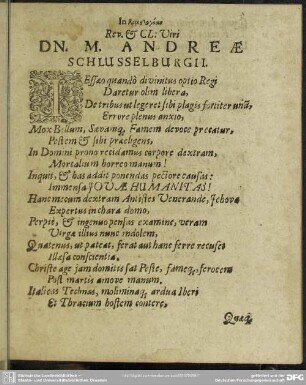 In
Rev. & CL: Viri
DN. M. ANDREÆ
SCHLUSSELBURGII.
IEssæo quando divinitus optio Regi
Daretur olim libera,
De tribus ut legeret sibi plagis fortiter unã,
Errore plenus anxio,
Mox Bellum, Sævamq́, Famem devocè precatur,
Pestem & sibi præeligens,
In Domini prono recidamus corpore dextram,
Mortalium horreo manum!
Inquit, & has addit ponendas pectore causas:
Immensa JOVÆ HUMANITAS!
Hanc mecum dextram Antistes Venerande, Jehovæ
Expertus in chara domo.
Perpis, & ingenuo pensas examine, veram
Virgæ illius nunc indolem,
Quatenus, ut pateat, ferat aut hanc ferre recuset
Illæsa conscientia.
Christe age jam domitis sat Peste, fameq́, ferocem
Post martis amove manum,
Italicas Technas, moliminaq́, ardua Iberi
Et Thracum hostem contere,
Quæq́